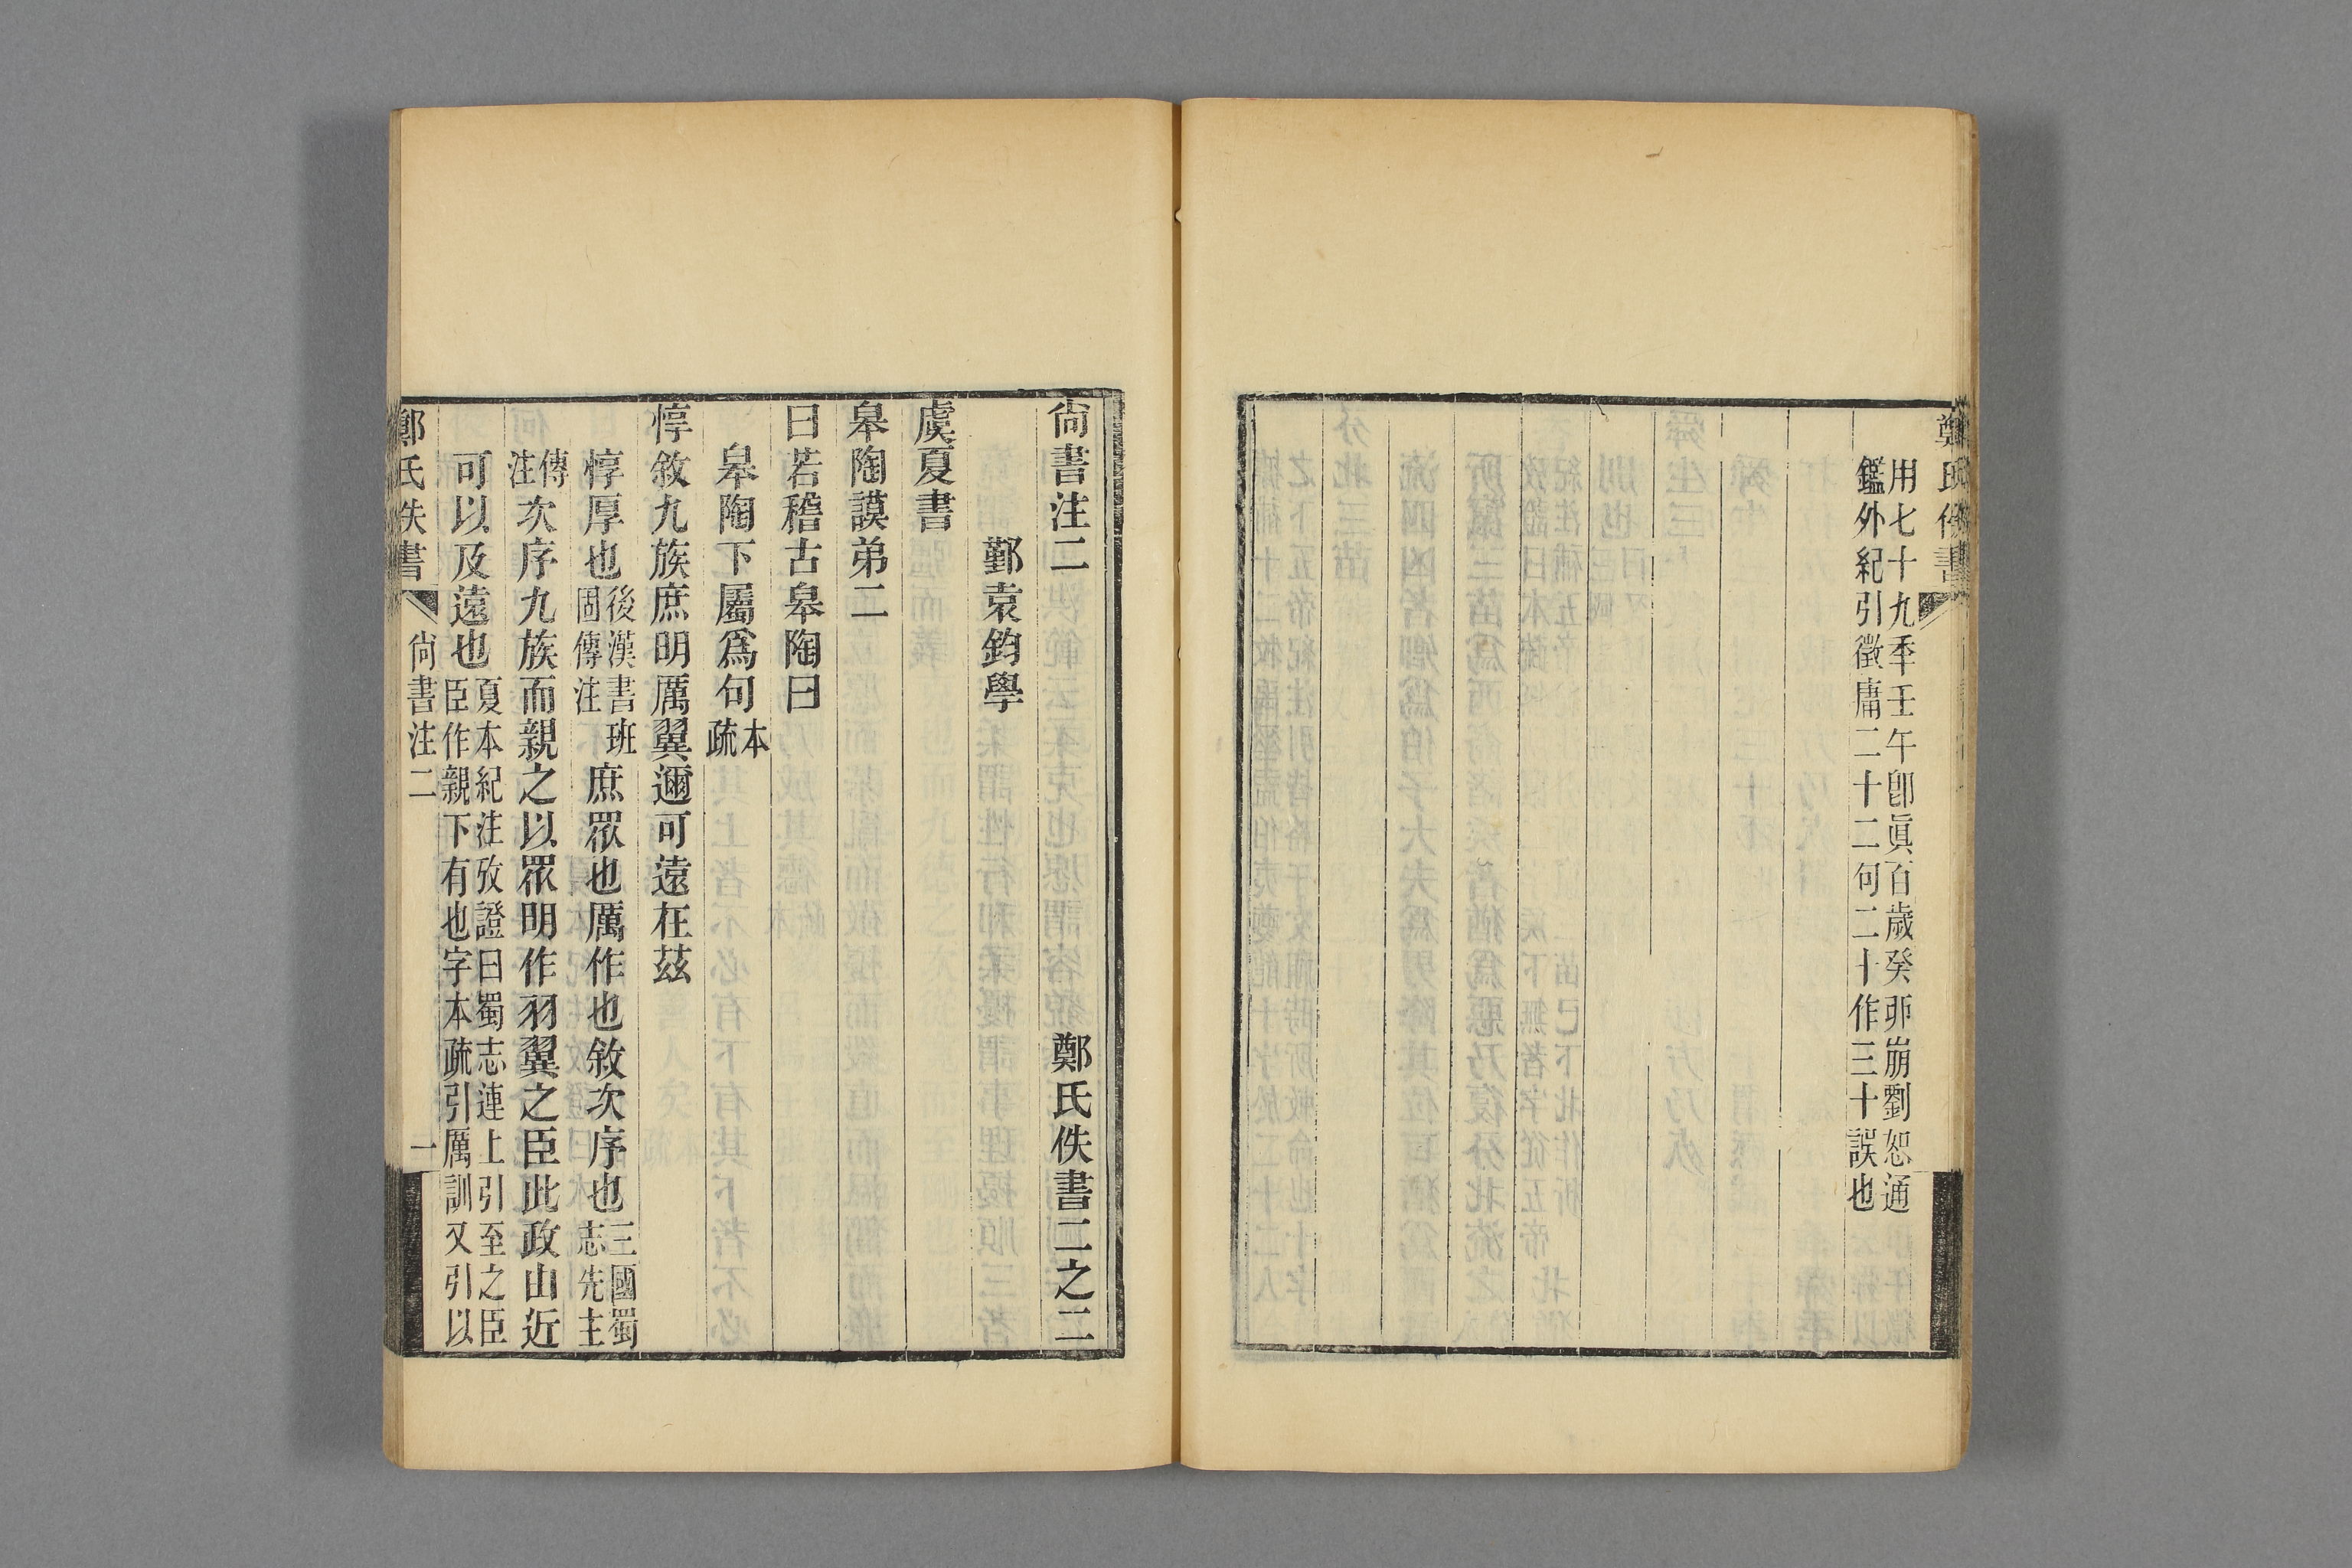 鄭氏佚書
用七十九年壬午卽眞百歲癸卯崩劉恕通
鑑外紀引徵庸二十二句二十作三十誤也
尙書注二　鄭氏佚書二之二
鄞袁鈞學
虞夏書
皋陶謨弟二
曰若稽古皋陶曰
皋陶下屬爲句本疏
惇敘九族庶明厲翼邇可遠在茲
惇厚也後漢書班固傳注庶眾也厲作也敘次序也三國蜀志先主
傳注次序九族而親之以眾明作羽翼之臣此政由近
可以及遠也夏本紀注攷證曰蜀志連上引至之臣臣作親下有也字本疏引厲訓又引以
鄭氏佚書　尙書注二　一